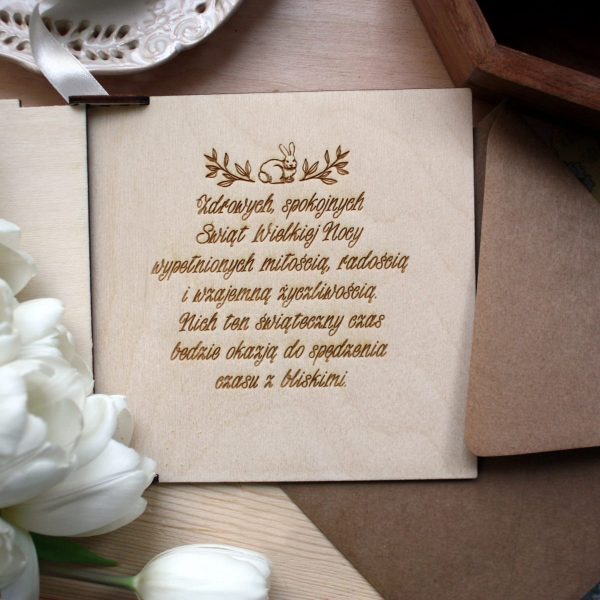 Zdrowych, spokojnych
Świąt Wielkiej Nocy
wypełnionych miłością, radością
i wzajemną życzliwością.
Nich ten świąteczny czas
będzie okazją do spędzenia
czasu z bliskimi.